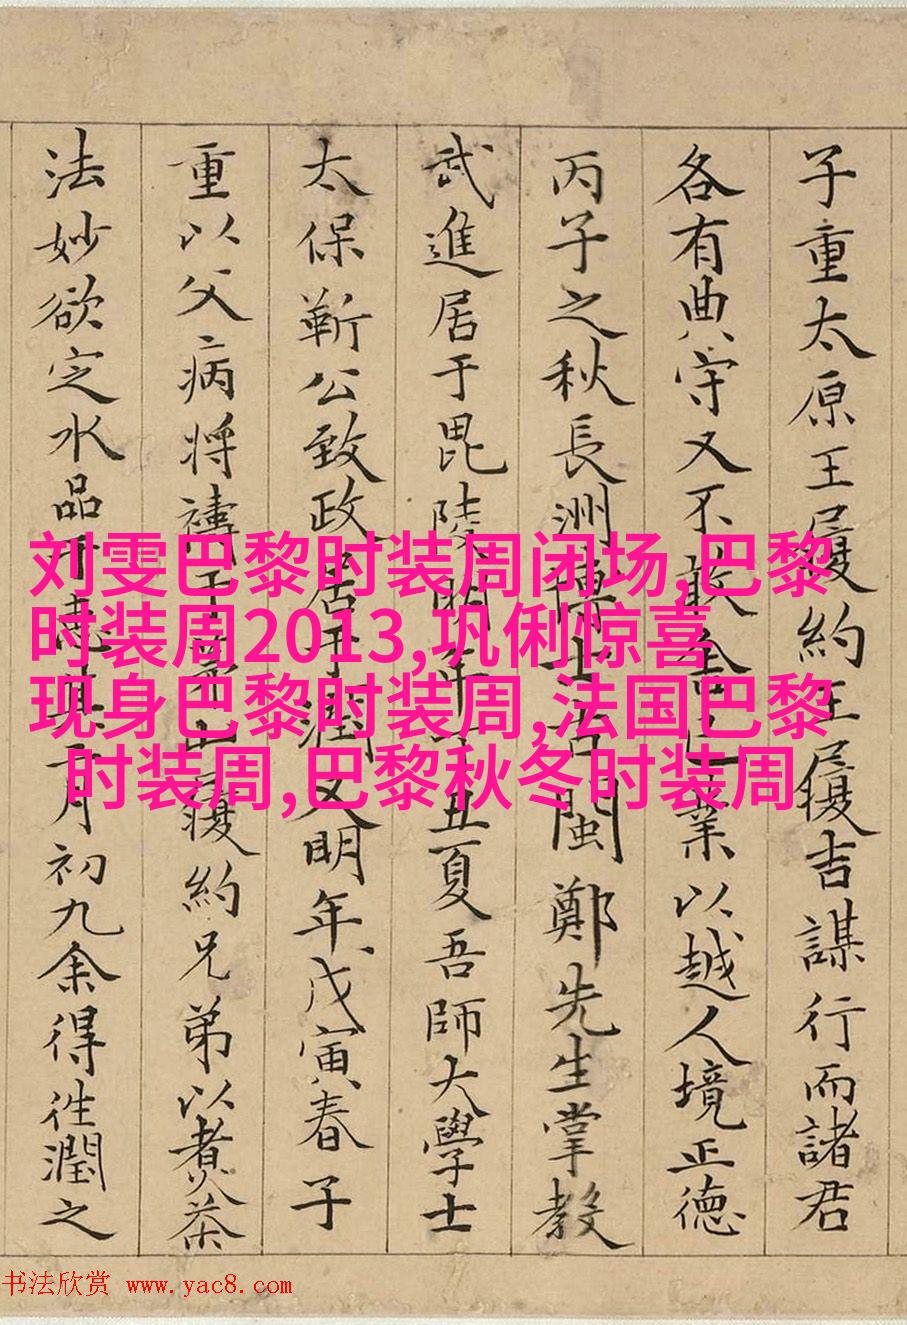 子重太原王履約王履吉謀行而諸君
各有典守又不敢舍己業以越人境正德
丙子之秋長洲博士古閩鄭先生掌教
武進居于毘陵明年丁丑夏吾師大學士
太保靳公致政居于潤又明年戊寅春子
重以父病將禱于茅山履約兄弟以煮茶
法妙欲定水品于惠其二月初九余得往潤之
刘雯巴黎时装周闭场,巴黎
时装周2013,巩俐惊喜
现身巴黎时装周,法国巴黎
时装周,巴黎秋冬时装周
书法欣赏 www.yac8.com